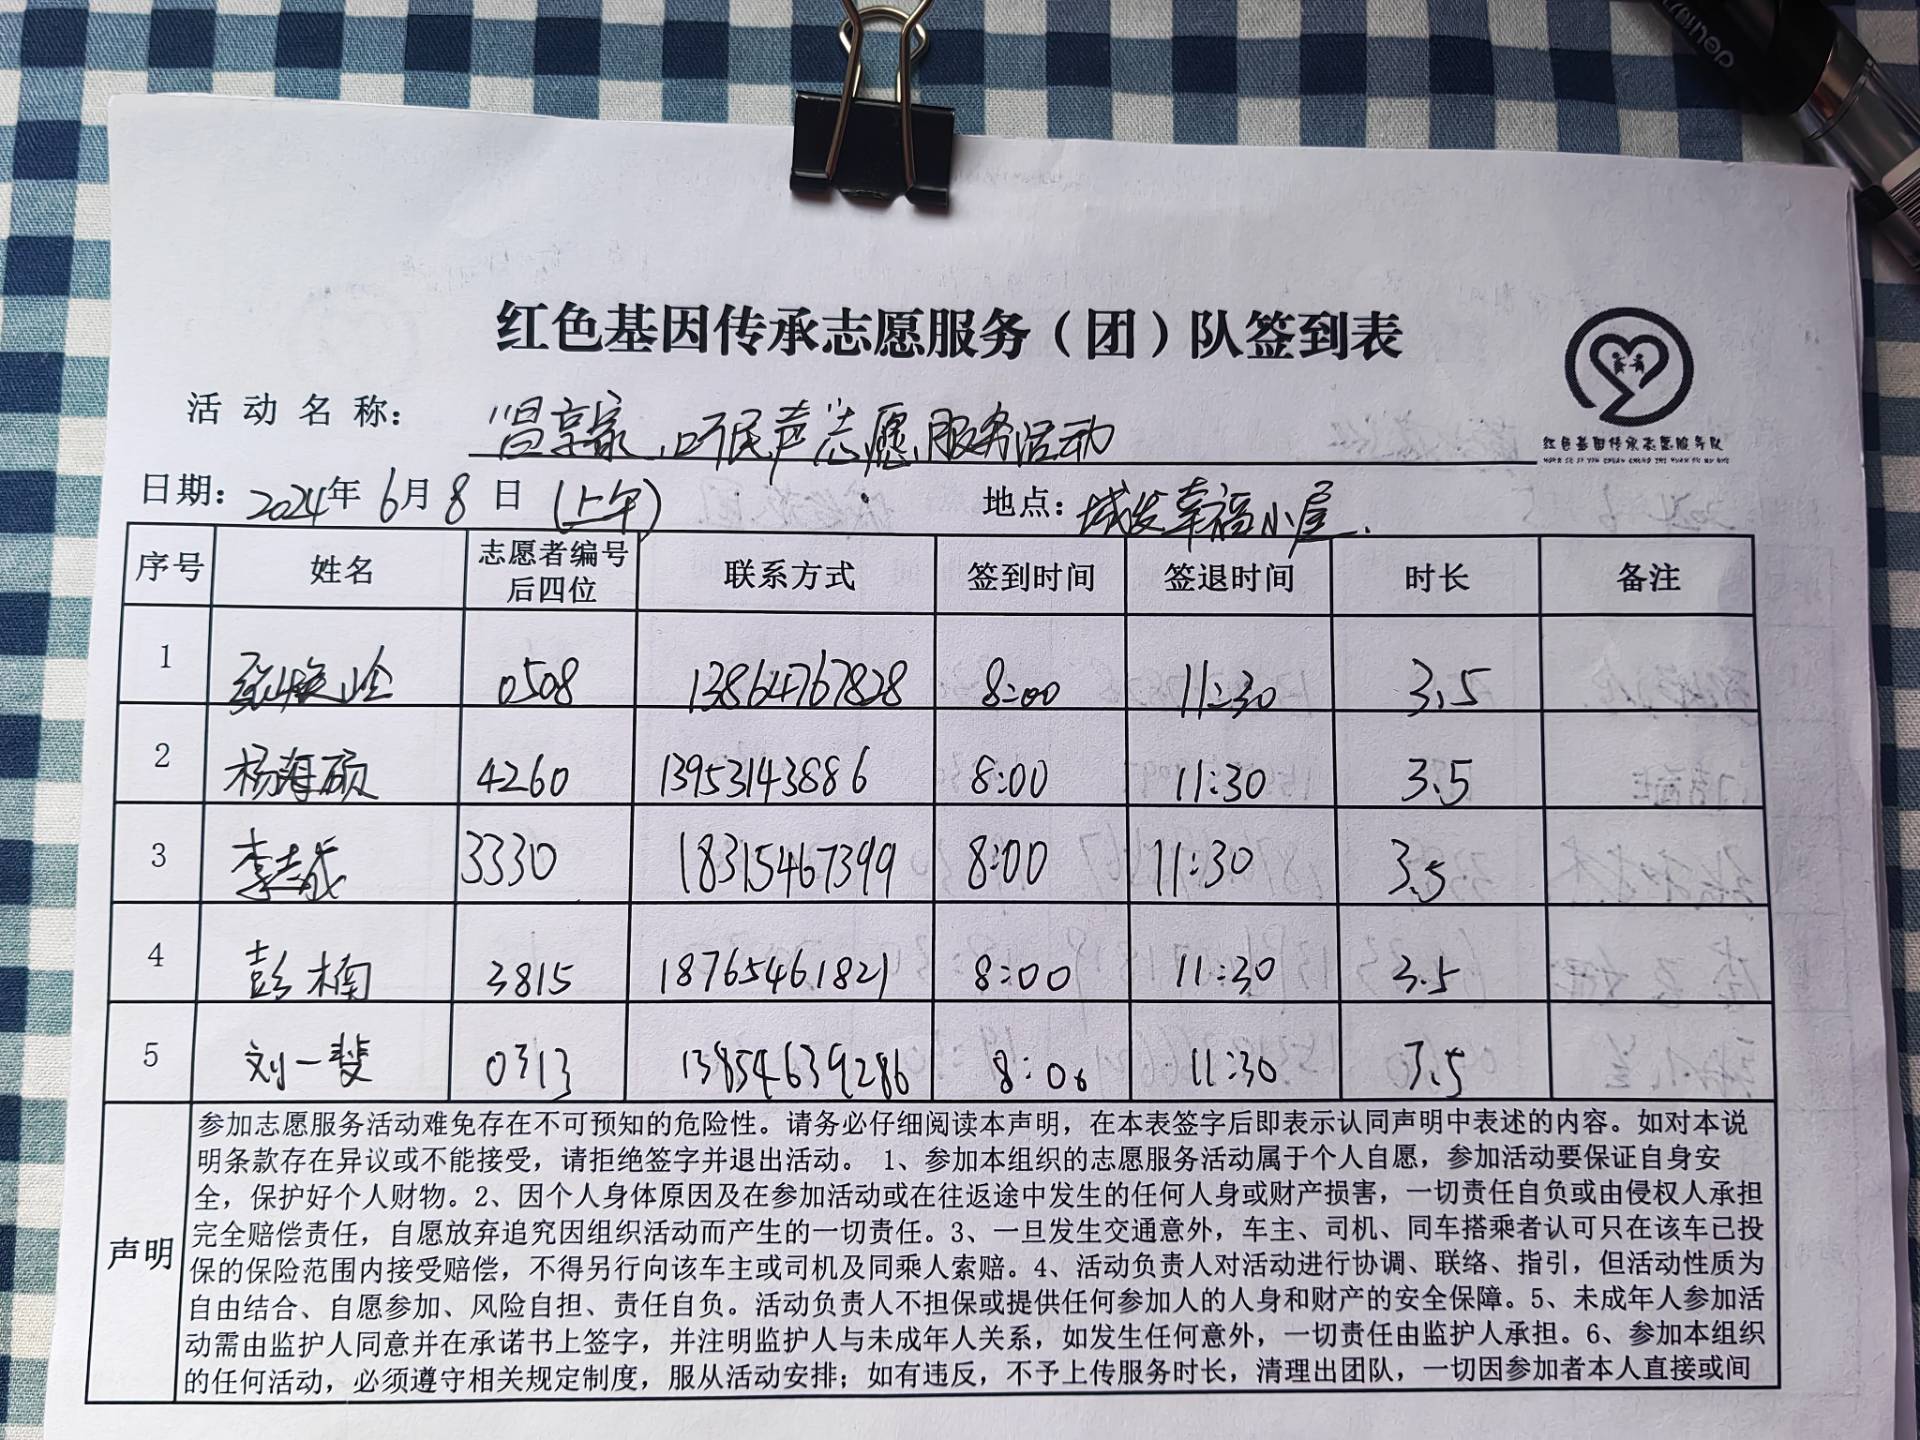 红色基因传承志愿服务（团）队签到表
红色基因传承志愿服务队
活动名称： “冒享家，听民声”志愿服务活动
日期：2024年6月8日（上午） 地点：城发幸福小屋.
序号 姓名 志愿者编号后四位 联系方式 签到时间 签退时间 时长 备注
1 0508 13864767828 8:00 11:30 3.5
2 杨海硕 4260 13953143886 8:00 11:30 3.5
3 李志成 3330 18315467399 8:00 11:30 3.5
4 彭楠 3815 18765461821 8:00 11:30 3.5
5 刘一斐 0313 13854639286 8:00 11:30 3.5
声明
参加志愿服务活动难免存在不可预知的危险性。请务必仔细阅读本声明，在本表签字后即表示认同声明中表述的内容。如对本说
明条款存在异议或不能接受，请拒绝签字并退出活动。 1、参加本组织的志愿服务活动属于个人自愿，参加活动要保证自身安
全，保护好个人财物。2、因个人身体原因及在参加活动或在往返途中发生的任何人身或财产损害，一切责任自负或由侵权人承担
完全赔偿责任，自愿放弃追究因组织活动而产生的一切责任。3、一旦发生交通意外，车主、司机、同车搭乘者认可只在该车已投
保的保险范围内接受赔偿，不得另行向该车主或司机及同乘人索赔。4、活动负责人对活动进行协调、联络、指引，但活动性质为
自由结合、自愿参加、风险自担、责任自负。活动负责人不担保或提供任何参加人的人身和财产的安全保障。5、未成年人参加活
动需由监护人同意并在承诺书上签字，并注明监护人与未成年人关系，如发生任何意外，一切责任由监护人承担。6、参加本组织
的任何活动，必须遵守相关规定制度，服从活动安排；如有违反，不予上传服务时长，清理出团队，一切因参加者本人直接或间